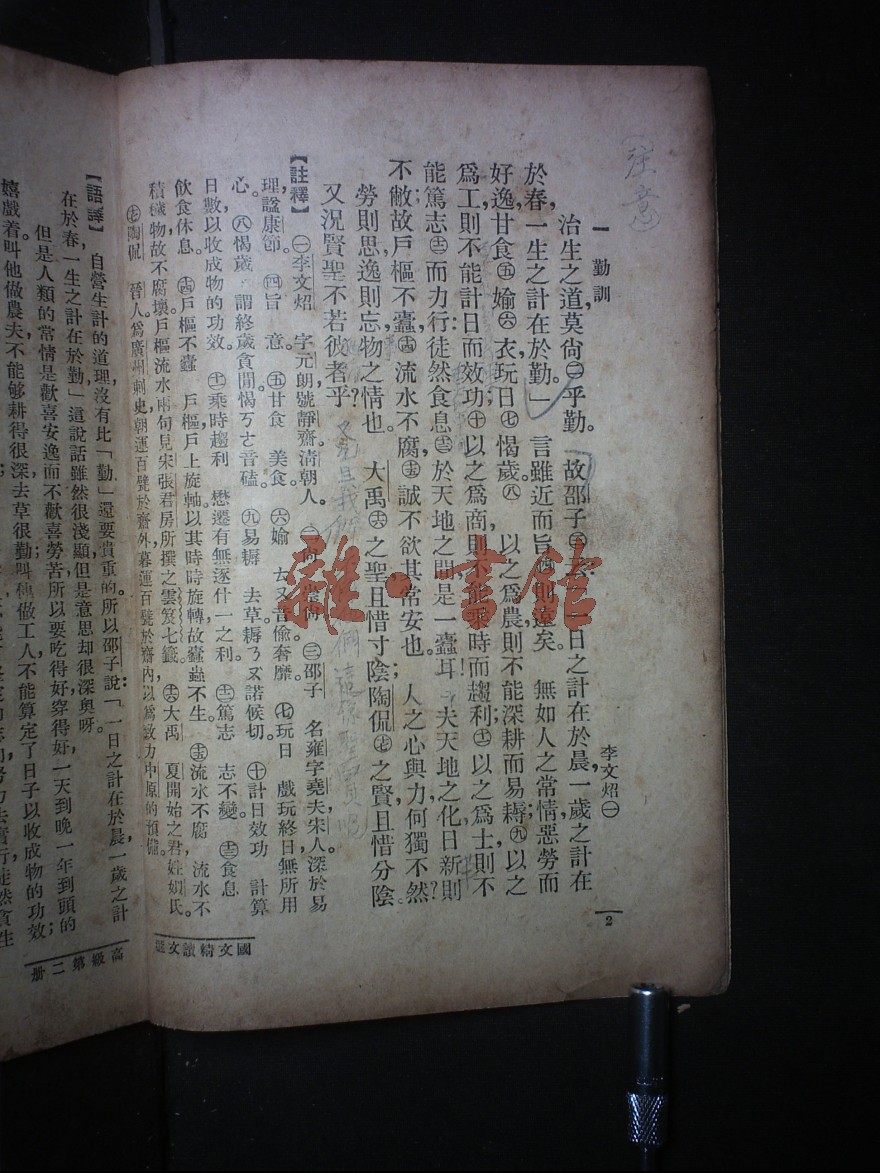 注意
一 勤訓
李文炤㊀
治生之道，莫尙㊁乎勤。故邵子㊂云：一日之計在於晨，一歲之計在
於春，一生之計在於勤。」言雖近而旨㊃則遠矣。無如人之常情，惡勞而
好逸，甘食㊄媮㊅衣，玩日㊆愒歲。㊇以之爲農，則不能深耕而易耨；㊈以之
爲工，則不能計日而效功；㊉以之爲商，則不能乘時而趨利；⑪以之爲士，則不
能篤志⑫而力行；徒然食息⑬於天地之間，是一蠹耳。夫天地之化，日新則
不敝；故戶樞不蠹，⑭流水不腐，⑮誠不欲其常安也。人之心與力，何獨不然？
勞則思，逸則忘，物之情也。大禹⑯之聖，且惜寸陰；陶侃⑰之賢，且惜分陰。
又況賢聖不若彼者乎？
【註釋】㊀李文炤 字元朗，號靜齋，淸朝人。㊁尙 ㊂邵子 名雍，字堯夫，宋人，深於易
理，諡康節。㊃旨 意。㊄甘食 美食。㊅媮 ㄊㄡ音偷，奢靡。㊆玩日 戲玩終日，無所用
心。㊇愒歲 謂終歲貪閒。愒ㄎㄜ音磕。㊈易耨 去草。耨ㄋㄡ諾候切。㊉計日效功 計算
日數，以收成物的功效。⑪乘時趨利 懋遷有無，逐什一之利。⑫篤志 志不變。⑬食息
飲食休息。⑭戶樞不蠹 戶樞，戶上旋軸。以其時時旋轉，故蠹蟲不生。⑮流水不腐 流水不
積穢物，故不腐壞。戶樞流水兩句，見宋張君房所撰之雲笈七籤。⑯大禹 夏開始之君，姓姒氏。
⑰陶侃 晉人，爲廣州刺史，朝運百甓於齋外，暮運百甓於齋內，以爲致力中原的預備。
【語譯】自營生計的道理，沒有比「勤」還要貴重的。所以邵子說：「一日之計在於晨，一歲之計
在於春，一生之計在於勤」這說話雖然很淺顯，但是意思却很深奧呀。
但是人類的常情，是歡喜安逸而不歡喜勞苦，所以要吃得好，穿得好，一天到晚，一年到頭的
嬉戲着。叫他做農夫，不能够耕得很深，去草很勤；叫他做工人，不能算定了日子，以收成物的功效；
2
國文精讀文選
高級第二册
雜·書館